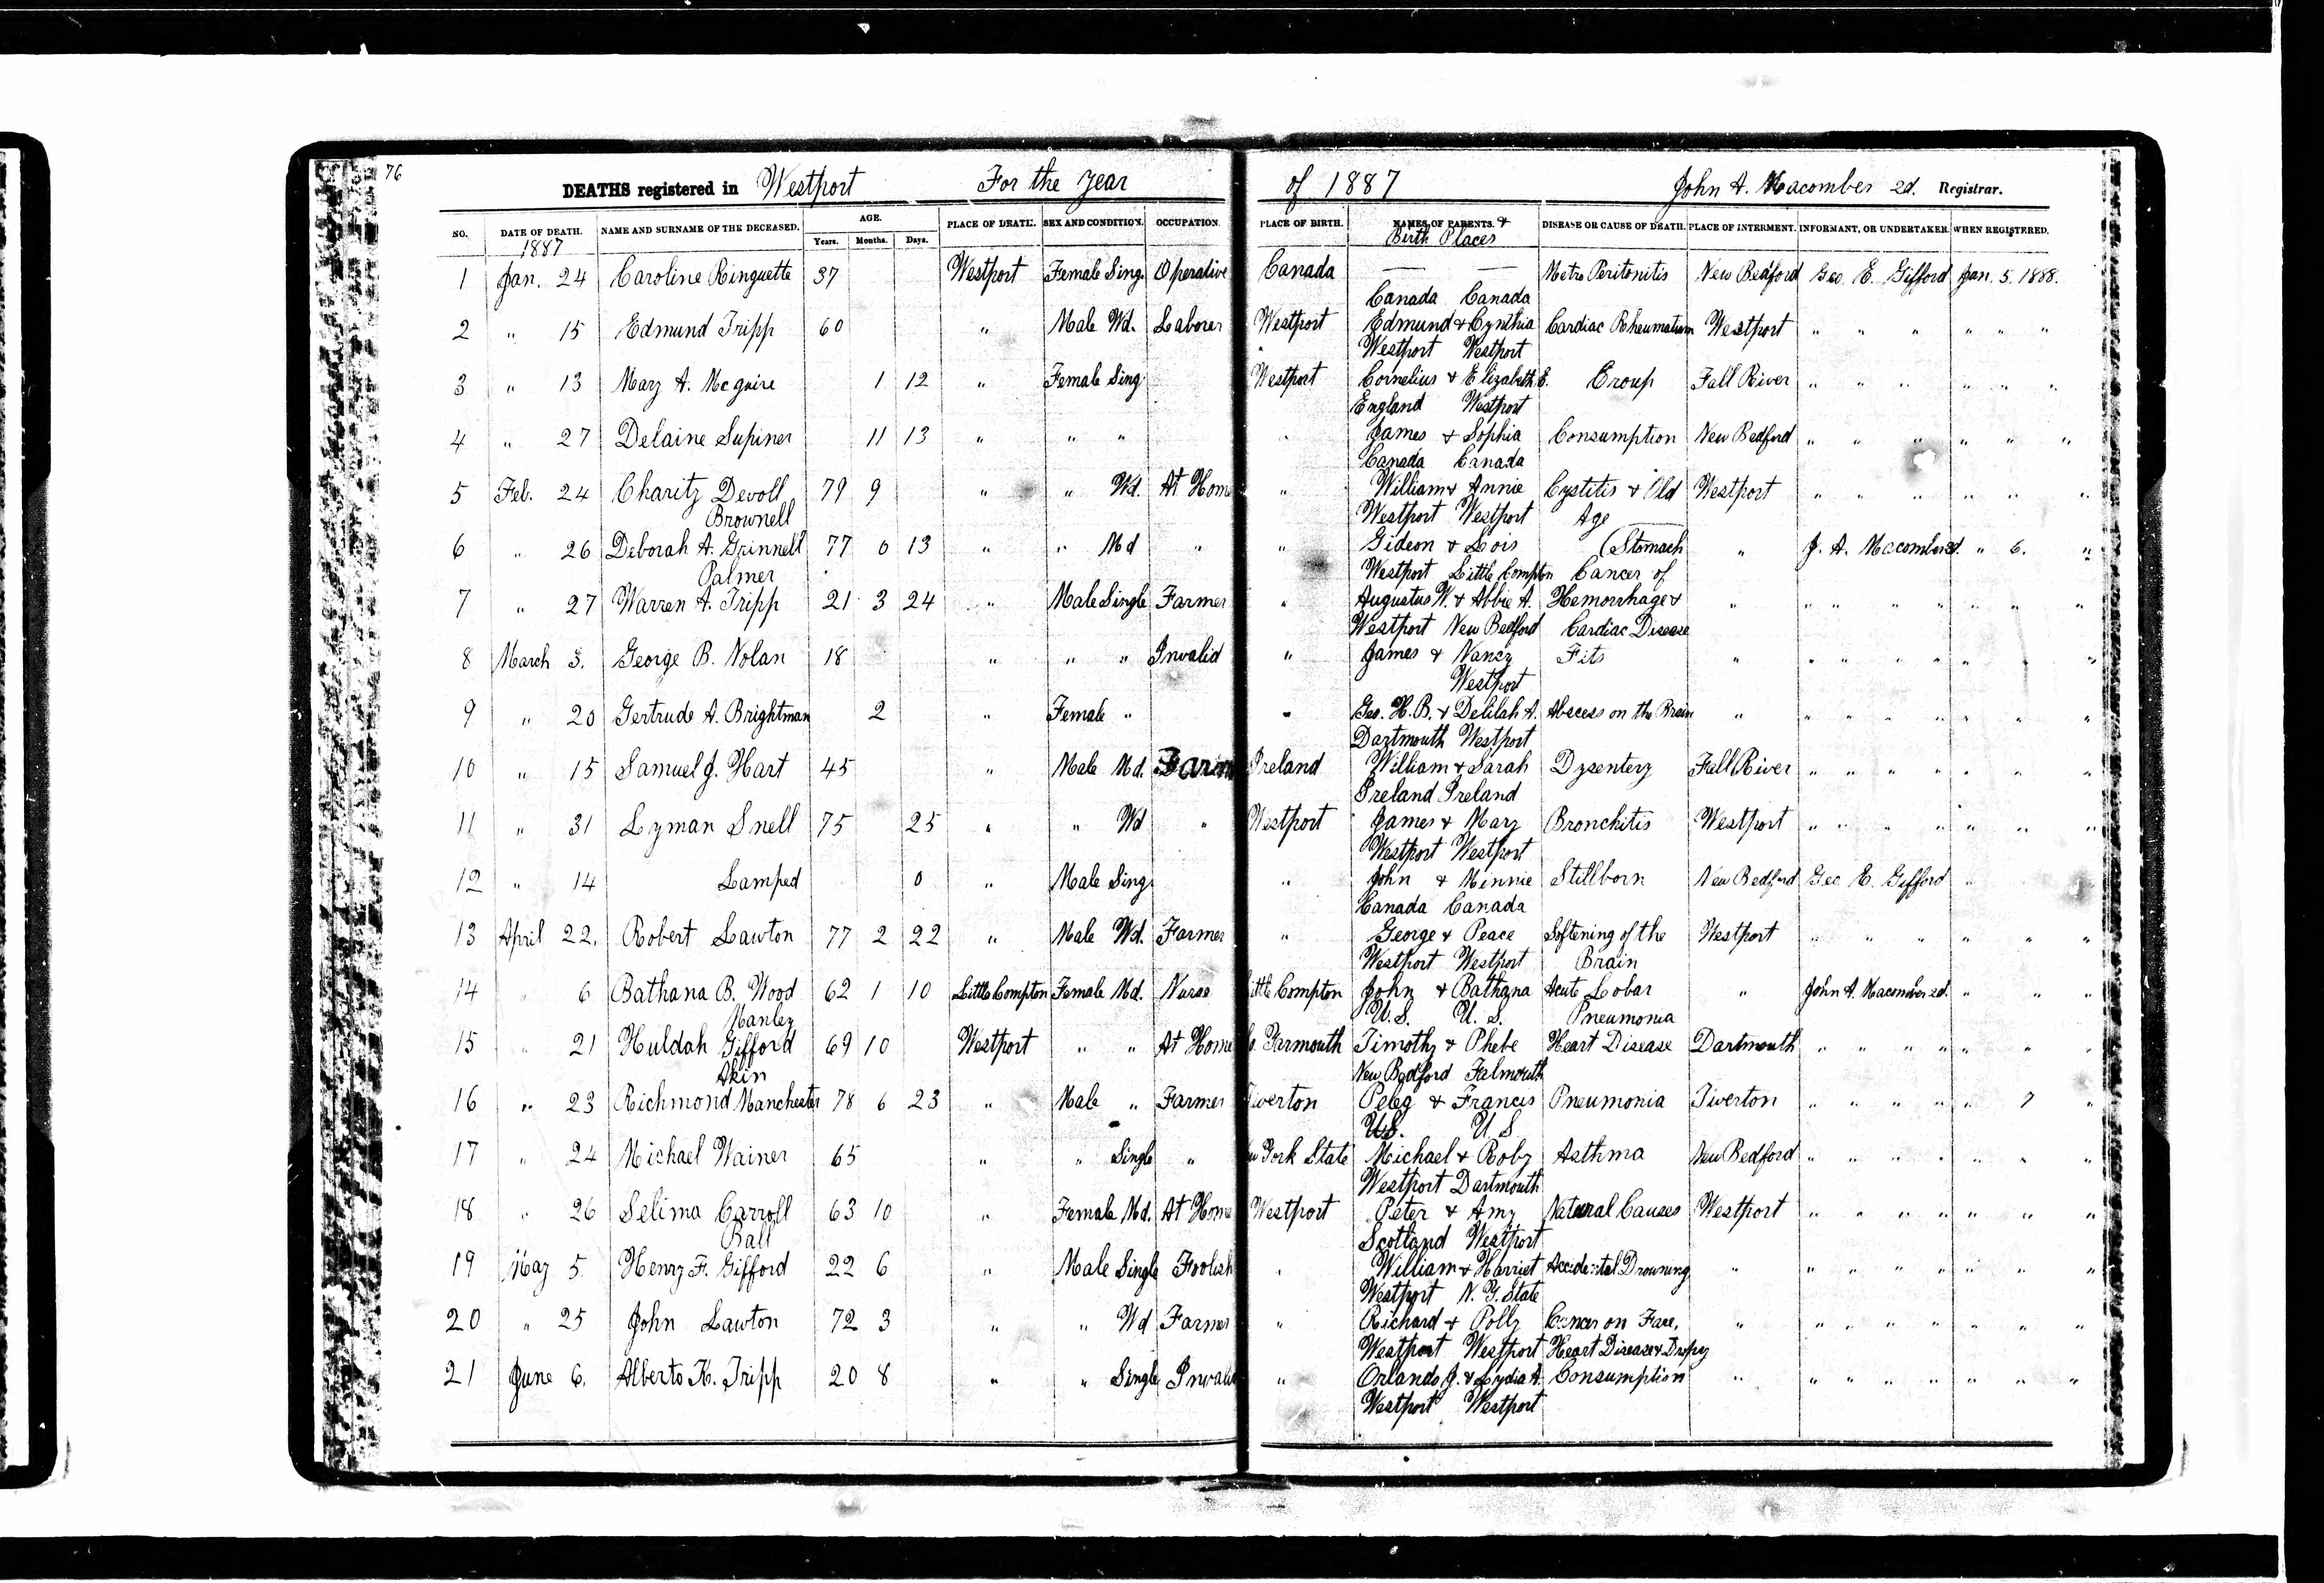 76
DEATHS registered in Westport For the Year of 1887 John A. Macomber 2d. Registrar.
NO. DATE OF DEATH. NAME AND SURNAME OF THE DECEASED. AGE. PLACE OF DEATH. SEX AND CONDITION. OCCUPATION. PLACE OF BIRTH. NAMES OF PARENTS. & DISEASE OR CAUSE OF DEATH. PLACE OF INTERMENT. INFORMANT, OR UNDERTAKER. WHEN REGISTERED.
1887 Years. Months. Days. Birth Places
1 Jan. 24 Caroline Ringuette 37 Westport Female Sing. Operative Canada — — Metro Peritonitis New Bedford Geo. E. Gifford Jan. 5. 1888.
Canada Canada
2 " 15 Edmund Tripp 60 " Male Wd. Laborer Westport Edmund & Cynthia Cardiac Rheumatism Westport " " " " " "
Westport Westport
3 " 13 Mary A. Mcguire 1 12 " Female Sing Westport Cornelius & Elizabeth E. Croup Fall River " " " " " "
England Westport
4 " 27 Delaine Supiner 11 13 " " " " James & Sophia Consumption New Bedford " " " " " "
Canada Canada
5 Feb. 24 Charity Devoll 79 9 " " Wd. At Home " William & Annie Cystitis & Old Westport " " " " " "
Brownell Westport Westport Age
6 " 26 Deborah A. Grinnell 77 0 13 " " Md " " Gideon & Lois (Stomach " J. A. Macomber 2d. " 6. "
Palmer Westport Little Compton Cancer of
7 " 27 Warren A. Tripp 21 3 24 " Male Single Farmer " Augustus W. & Abbie A. Hemorrhage & " " " " " " " "
Westport New Bedford Cardiac Disease
8 March 3. George B. Nolan 18 " " " Invalid " James & Nancy Fits " " " " " " "
Westport
9 " 20 Gertrude A. Brightman 2 " Female " " Geo. H. B. & Delilah A. Abscess on the Brain " " " " " " " "
Dartmouth Westport
10 " 15 Samuel J. Hart 45 " Male Md. Farm Ireland William & Sarah Dysentery Fall River " " " " " " "
Ireland Ireland
11 " 31 Lyman Snell 75 25 " " Wd " Westport James & Mary Bronchitis Westport " " " " " " "
Westport Westport
12 " 14 Lamped 0 " Male Sing " John & Minnie Stillborn New Bedford Geo E. Gifford "
Canada Canada
13 April 22. Robert Lawton 77 2 22 " Male Wd. Farmer " George & Peace Softening of the Westport " " " " " "
Westport Westport Brain
14 " 6 Bathana B. Wood 62 1 10 Little Compton Female Md. Nurse ittle Compton John & Bathana Acute Lobar " John A. Macomber 2d. " " "
Manley U.S. U.S. Pneumonia
15 " 21 Huldah Gifford 69 10 Westport " " At Home o. Yarmouth Timothy & Phebe Heart Disease Dartmouth " " " " " " "
Akin New Bedford Falmouth
16 " 23 Richmond Manchester 78 6 23 " Male " Farmer iverton Peleg & Francis Pneumonia Tiverton " " " " " 7 "
U.S. U S
17 " 24 Michael Wainer 65 " " Single " w York State Michael & Roby Asthma New Bedford " " " " " " "
Westport Dartmouth
18 " 26 Selima Carroll 63 10 " Female Md. At Home Westport Peter & Amy Natural Causes Westport " " " " " " "
Ball Scotland Westport
19 May 5. Henry F. Gifford 22 6 " Male Single Foolish " William & Harriet Accidental Drowning " " " " " " " "
Westport N. Y. State
20 " 25 John Lawton 72 3 " " Wd Farmer " Richard & Polly Cancer on Face, " " " " " " " "
Westport Westport Heart Disease & Dropsy
21 June 6. Alberto K. Tripp 20 8 " " Single Invalid " Orlando J. & Lydia A. Consumption " " " " " " " "
Westport Westport